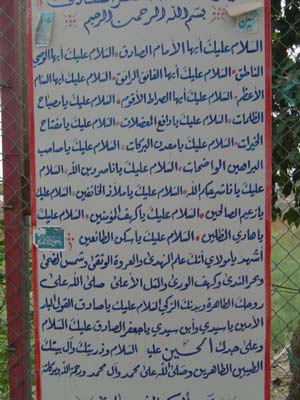 بسم الله الرحمن الرحيم
السلام عليك أيها الأمام الصادق السلام عليك أيها الوصي
الناطق السلام عليك أيها الفائق الرائق السلام عليك أيها السنام
الأعظم السلام عليك أيها الصراط الأقوم السلام عليك يا مصباح
الظلمات السلام عليك يا دافع المعضلات السلام عليك يا مفتاح
الخيرات السلام عليك يا معدن البركات السلام عليك يا صاحب
البراهين الواضحات السلام عليك يا ناصر دين الله السلام
عليك يا ناشر حكم الله السلام عليك يا ملاذ الخائفين السلام عليك
يا زعيم الصالحين السلام عليك يا كهف المؤمنين السلام عليك
يا هادي الظالين السلام عليك يا سكن الطائعين
أشهد يا مولاي أنك علم الهدى والعروة الوثقى وشمس الضحى
وبحر الندى وكهف الورى والمثل الأعلى صلى الله على
روحك الطاهرة وبدنك الزكي السلام عليك يا صادق القول البار
الأمين يا سيدي وابن سيدي يا جعفر الصادق عليك السلام
وعلى جدك الحسين عليه السلام وذريتك وآل بيتك
الطيبين الطاهرين وصلى الله على محمد وآل محمد ورحمة الله وبركاته